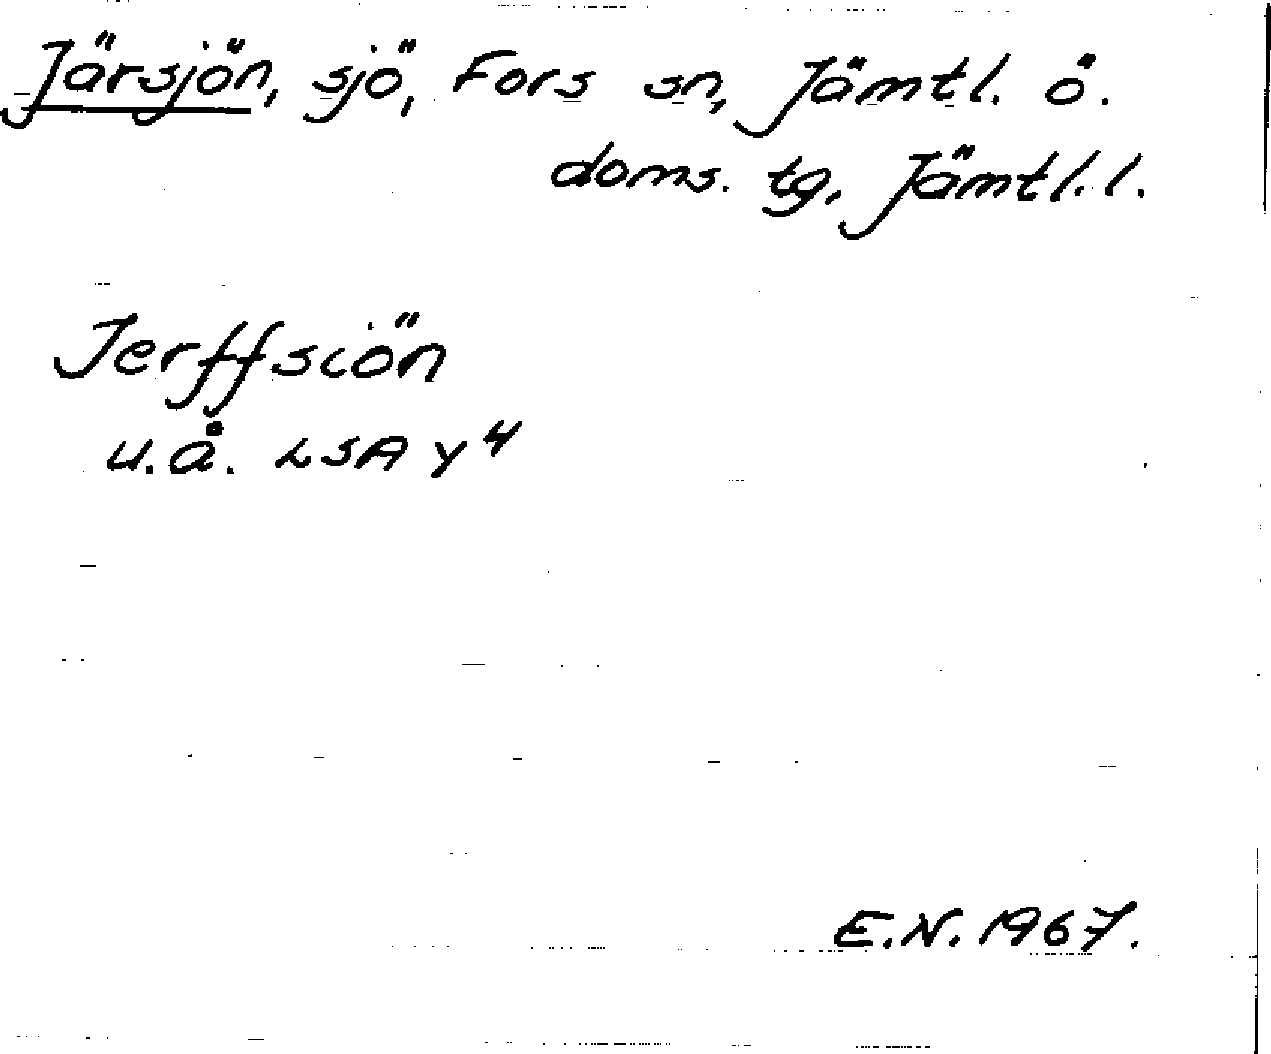 Järsjön, sjö, Fors sn, Jämtl. ö.
doms. tg, Jämtl. l.
Jerffsiön
u.å. LSA Y4
E.N. 1967.